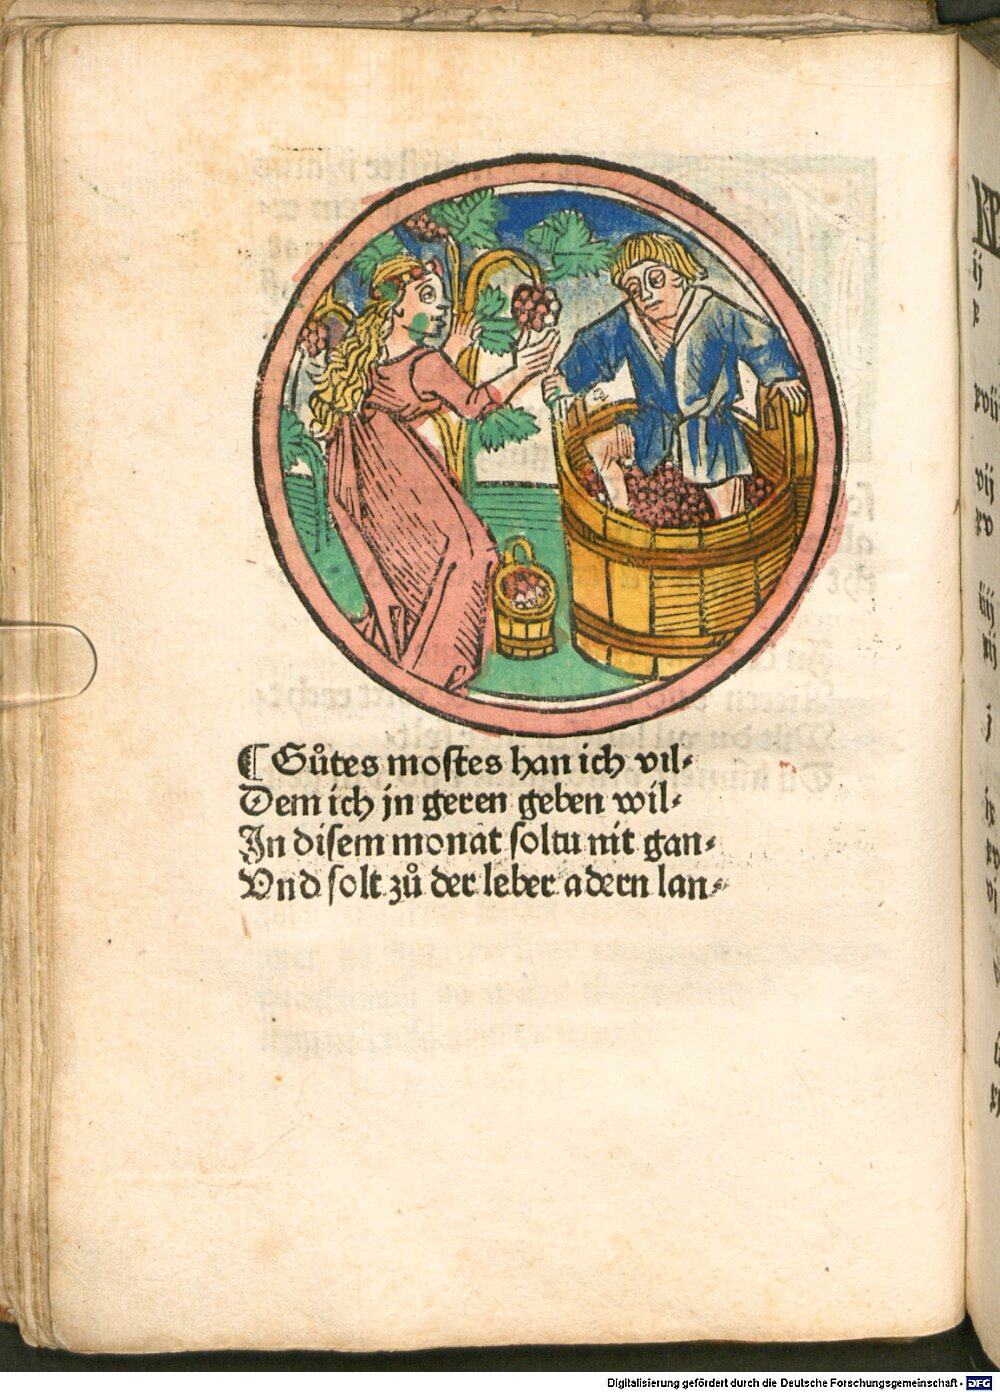 ¶ Gůtes mostes han ich vil⸗
Dem ich jn geren geben wil⸗
In disem monat soltu nit gan⸗
Vnd solt zů der leber adern lan⸗
ij
xvij
vij
xv
iij
Digitalisierung gefördert durch die Deutsche Forschungsgemeinschaft - DFG